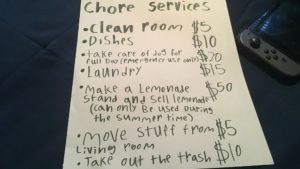 Chore Services
• Clean room $5
• Dishes $10
• take care of dog for
full day (emergency use only) $70
• Laundry $15
• Make a Lemonade $50
stand and sell lemonade
(can only be used during
the summer time)
• Move stuff from $5
living room
• Take out the trash $10